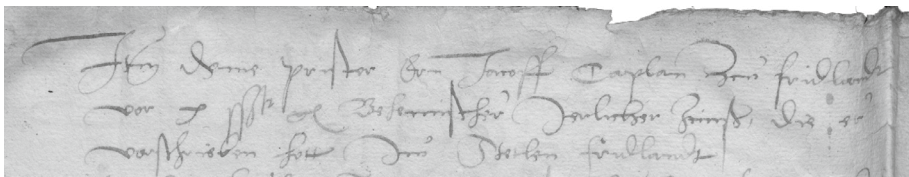 Item deme prister Ern Jacoff Caplan Zcu fridlandt
vor x Behemischer Jerlicher Zcinß, die er
vorschrieben hott Im Stetlen fridlandt